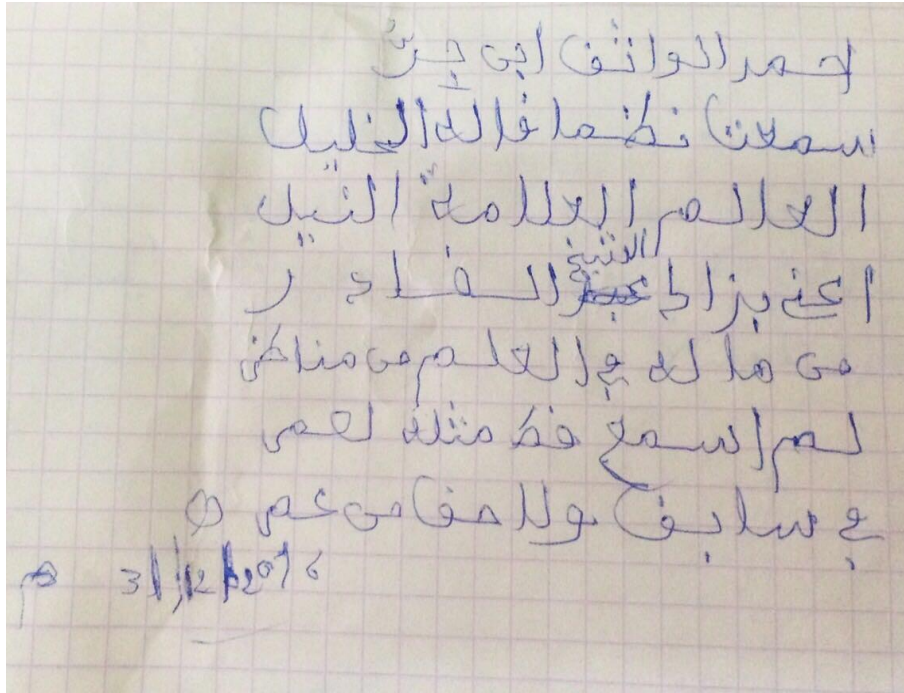 احمد الواثق ابن
سمعت نظما قاله الخليل
العالم العلامة النبيل
اعني بذاك الشيخ عبد القادر
من ما له في العلم من مناظر
لم اسمع قط مثله لعمر
في سابق ولاحق من عصر
31/12/2016 م